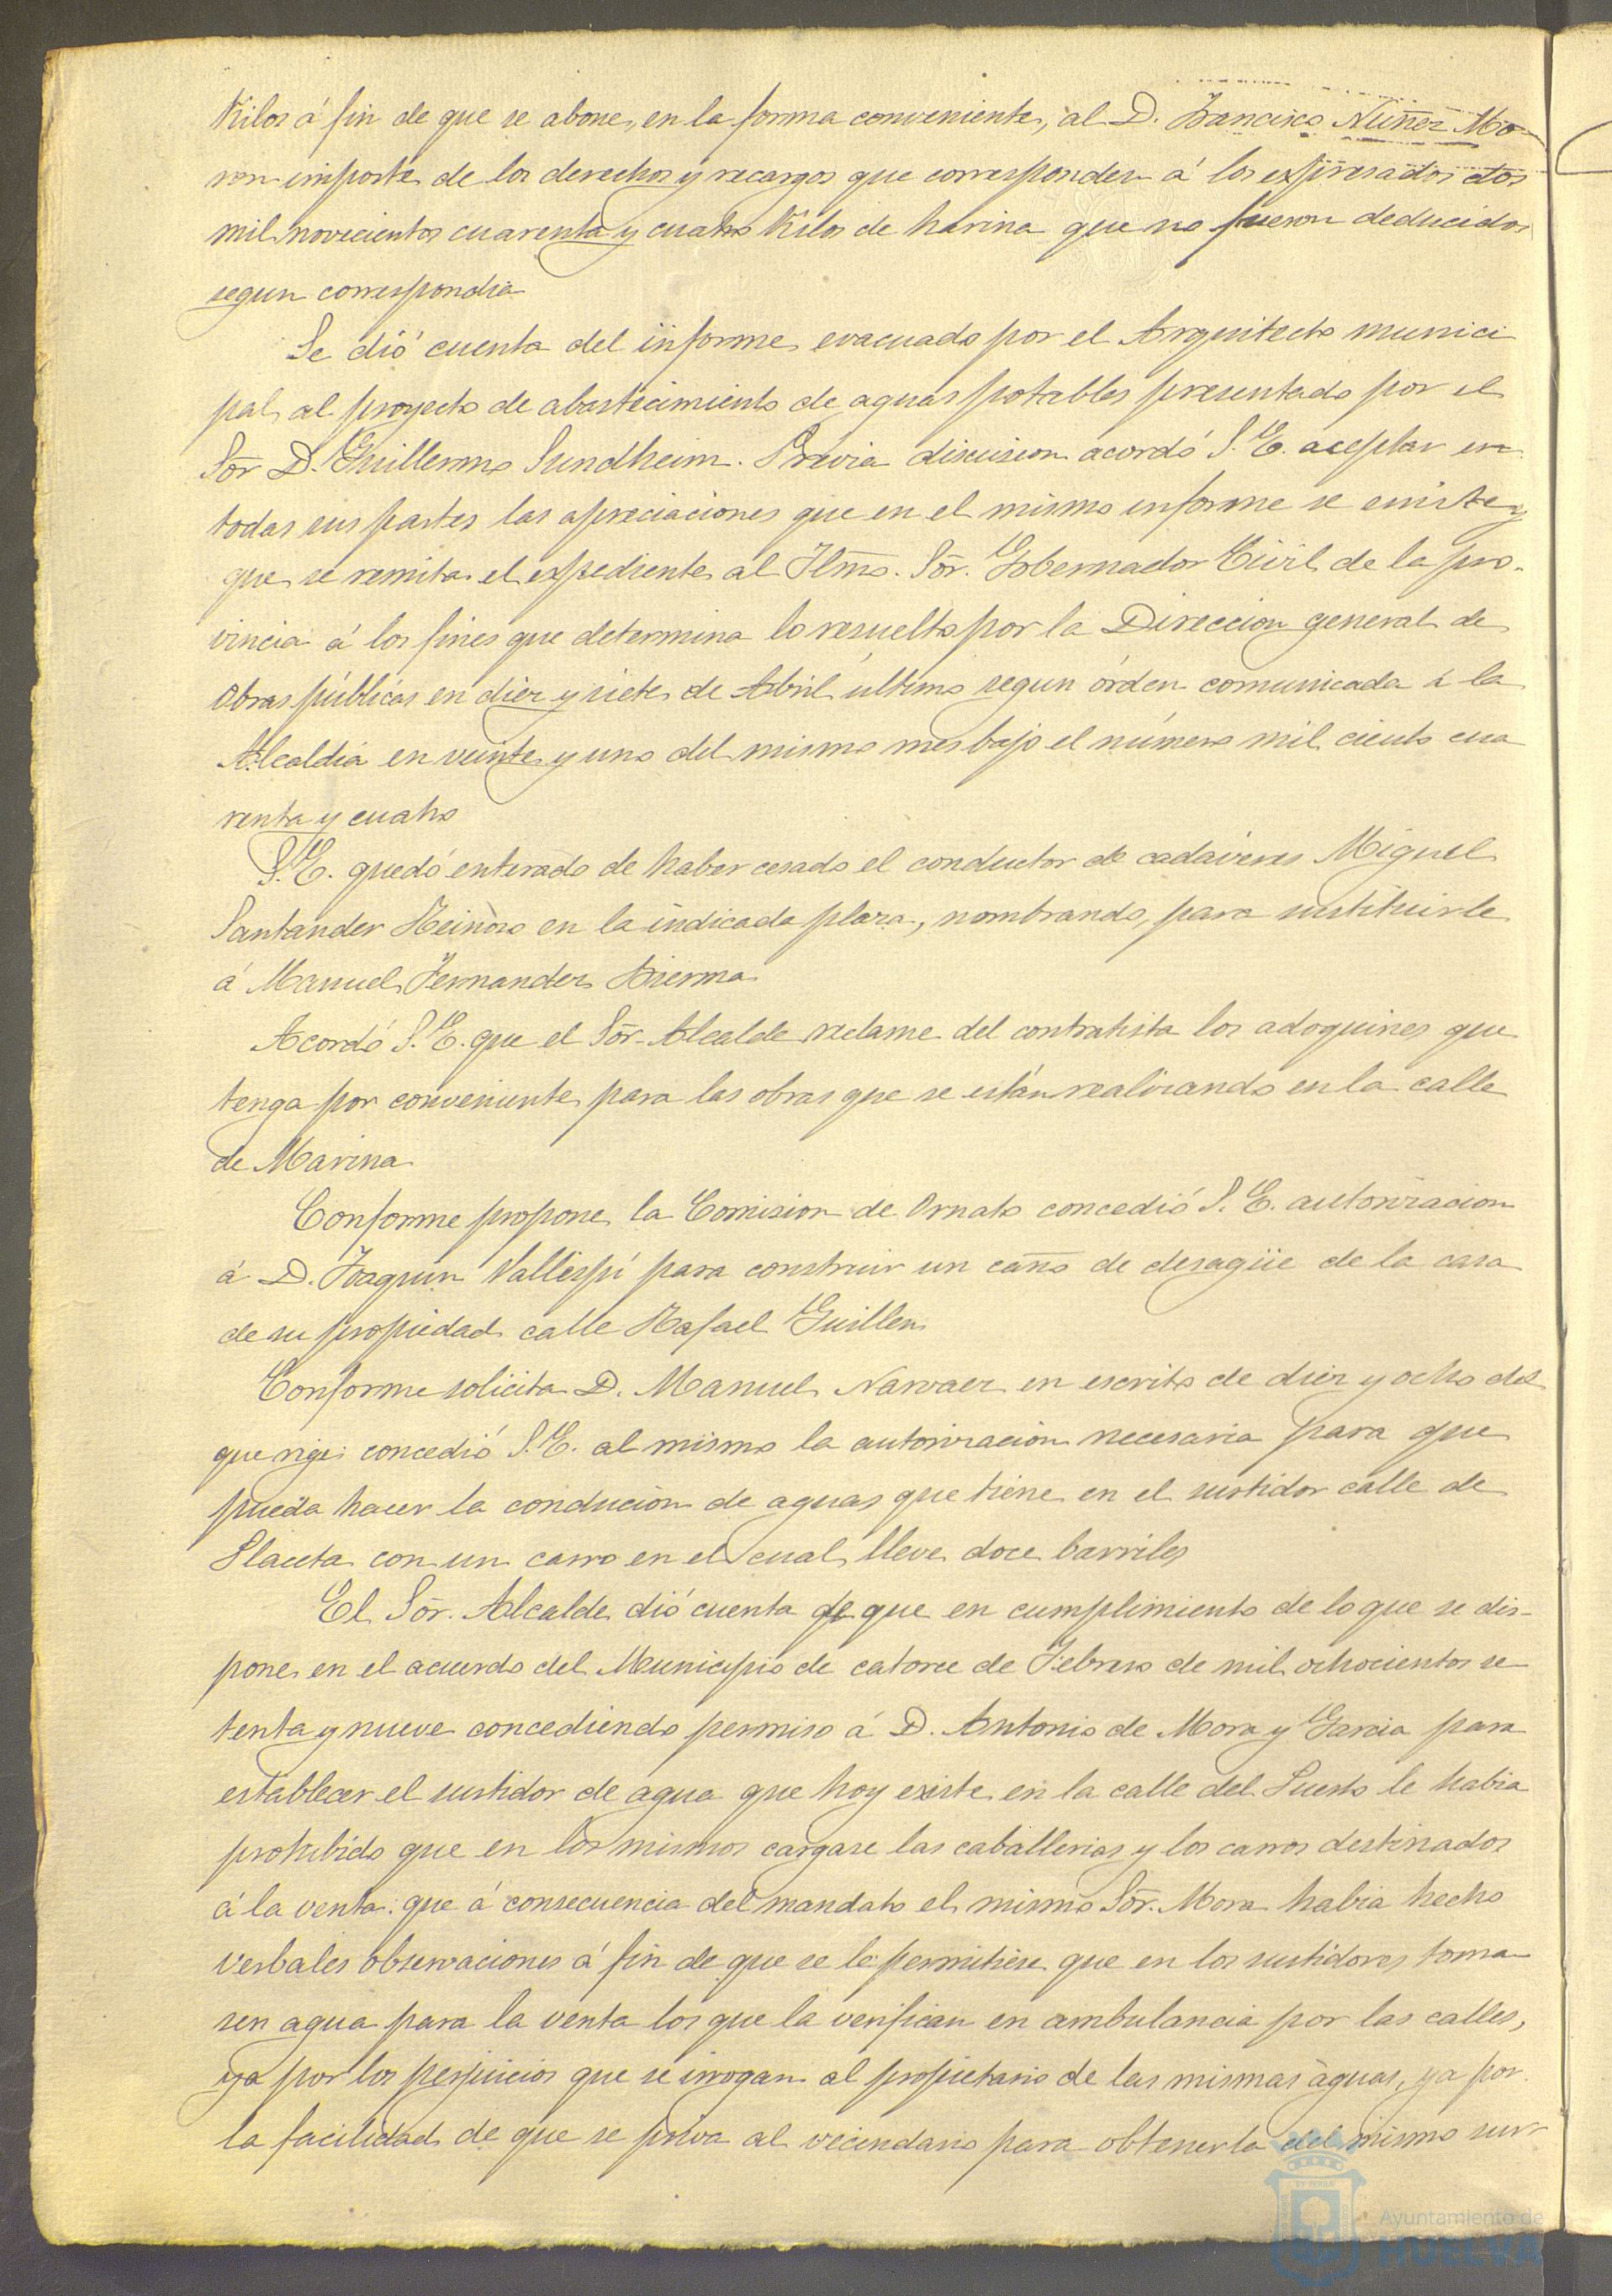 Kilos á fin de que se abone, en la forma conveniente, al D. Francisco Nuñez Mo-
ron importe de los derechos y recargos que corresponden á los expresados dos
mil novecientos cuarenta y cuatro Kilos de harina que no fueron deducidos
segun correspondia
Se dió cuenta del informe evacuado por el Arquitecto munici
pal al proyecto de abastecimiento de aguas potables presentado por el
Sōr D. Guillermo Sundheim. Previa discusion acordó S. E. aceptar en
todas sus partes las apreciaciones que en el mismo informe se emite y
que se remita el expediente al Ilmo. Sōr. Gobernador Civil de la pro-
vincia á los fines que determina lo resuelto por la Direccion general de
Obras públicas en diez y siete de Abril último segun órden comunicada á la
Alcaldia en veinte y uno del mismo mes bajo el número mil ciento cua
renta y cuatro
S. E. quedó enterado de haber cesado el conductor de cadáveres Miguel
Santander Reinoso en la indicada plaza, nombrando para sustituirle
á Manuel Fernandez Bierma
Acordó S. E. que el Sōr. Alcalde reclame del contratista los adoquines que
tenga por conveniente para las obras que se están realizando en la calle
de Marina
Conforme propone la Comision de Ornato concedió S. E. autorizacion
á D. Joaquin Vallespí para construir un caño de desagüe de la casa
de su propiedad calle Rafael Guillen
Conforme solicita D. Manuel Narvaez en escrito de diez y ocho del
que rige concedió S. E. al mismo la autorizacion necesaria para que
pueda hacer la conducion de aguas que tiene en el surtidor calle de
Placeta con un carro en el cual lleve doce barriles
El Sōr. Alcalde dió cuenta de que en cumplimiento de lo que se dis-
pone en el acuerdo del Municipio de catorce de Febrero de mil ochocientos se
tenta y nueve concediendo permiso á D. Antonio de Mora y Garcia para
establecer el surtidor de agua que hoy existe en la calle del Puerto le habia
prohibido que en los mismos cargase las caballerias y los carros destinados
á la venta: que á consecuencia del mandato el mismo Sōr. Mora habia hecho
verbales observaciones á fin de que se le permitiese que en los surtidores toma-
sen agua para la venta los que la verifican en ambulancia por las calles,
ya por los perjuicios que se irrogan al propietario de las mismas aguas, ya por
la facilidad de que se priva al vecindario para obtenerla del mismo sur-
Ayuntamiento de
HUELVA